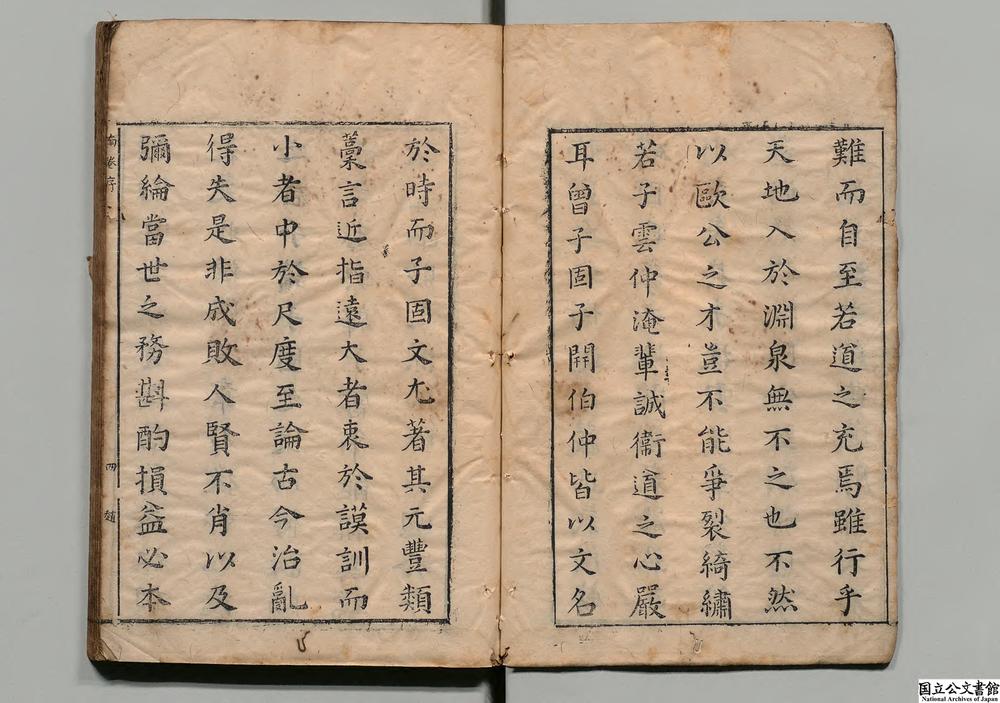 難而自至若道之充焉雖行乎
天地入於淵泉無不之也不然
以歐公之才豈不能爭裂綺繡
若子雲仲淹輩誠衞道之心嚴
耳曾子固子開伯仲皆以文名
於時而子固文尤著其元豐類
藁言近指遠大者衷於謨訓而
小者中於尺度至論古今治亂
得失是非成敗人賢不肖以及
彌綸當世之務斟酌損益必本
四
趙
国立公文書館
National Archives of Japan